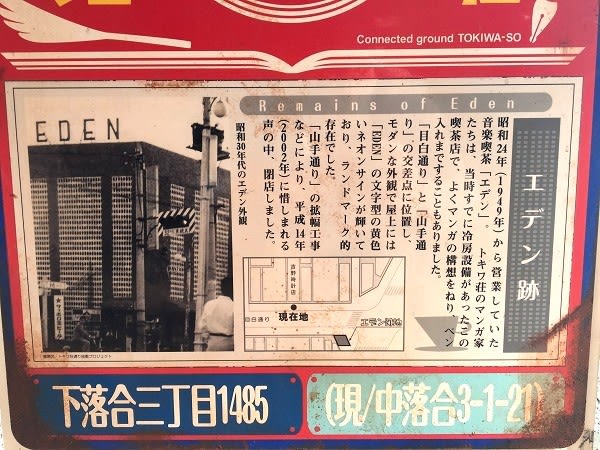 Connected ground TOKIWA-SO
Remains of Eden
エデン跡
昭和24年(1949年)から営業していた
音楽喫茶「エデン」。　トキワ荘のマンガ家
たちは、当時すでに冷房設備があったこの
喫茶店で、よくマンガの構想をねり、ペン
入れまですることもありました。
「目白通り」と「山手通
り」の交差点に位置し、
モダンな外観で屋上には
「EDEN」の文字型の黄色
いネオンサインが輝いて
おり、ランドマーク的
存在でした。
「山手通り」の拡幅工事
などにより、平成14年
(2002年)に惜しまれる
声の中、閉店しました。
昭和30年代のエデン外観
EDEN
吉野時計店
現在地
目白通り
エデン跡地
下落合三丁目1485
(現/中落合3-1-21)